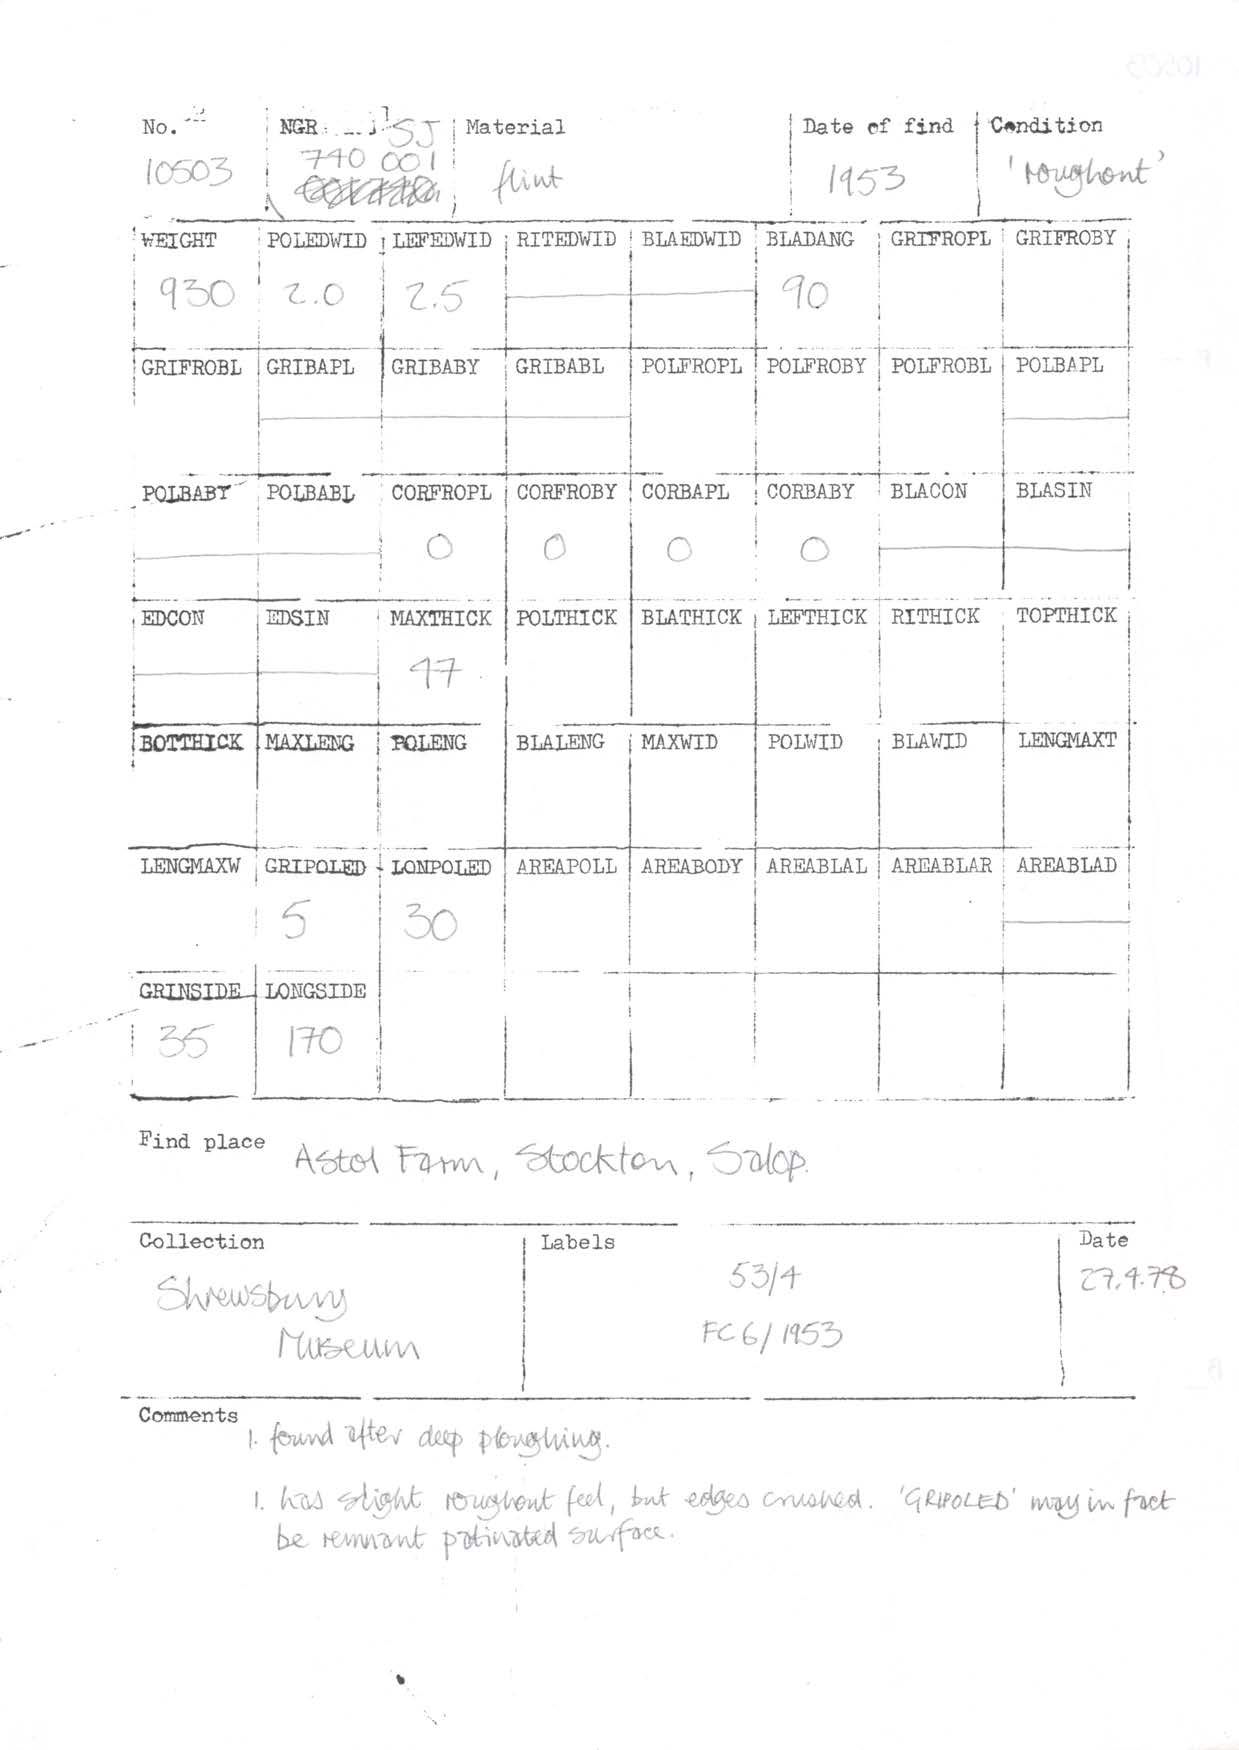 No. NGR SJ Material Date of find Condition
10503 740 001 flint 1953 'roughout'
WEIGHT POLEDWID LEFEDWID RITEDWID BLAEDWID BLADANG GRIFROPL GRIFROBY
930 2.0 2.5 90
GRIFROBL GRIBAPL GRIBABY GRIBABL POLFROPL POLFROBY POLFROBL POLBAPL
POLBABY POLBABL CORFROPL CORFROBY CORBAPL CORBABY BLACON BLASIN
0 0 0 0
EDCON EDSIN MAXTHICK POLTHICK BLATHICK LEFTHICK RITHICK TOPTHICK
47
BOTTHICK MAXLENG POLENG BLALENG MAXWID POLWID BLAWID LENGMAXT
LENGMAXW GRIPOLED LONPOLED AREAPOLL AREABODY AREABLAL AREABLAR AREABLAD
5 30
GRINSIDE LONGSIDE
35 170
Find place Astol Farm, Stockton, Salop.
Collection Labels Date
Shrewsbury Museum
53/4
FC 6/1953
27.4.78
Comments 1. found after deep ploughing.
1. has slight roughout feel, but edges crushed. 'GRIPOLED' may in fact
be remnant patinated surface.